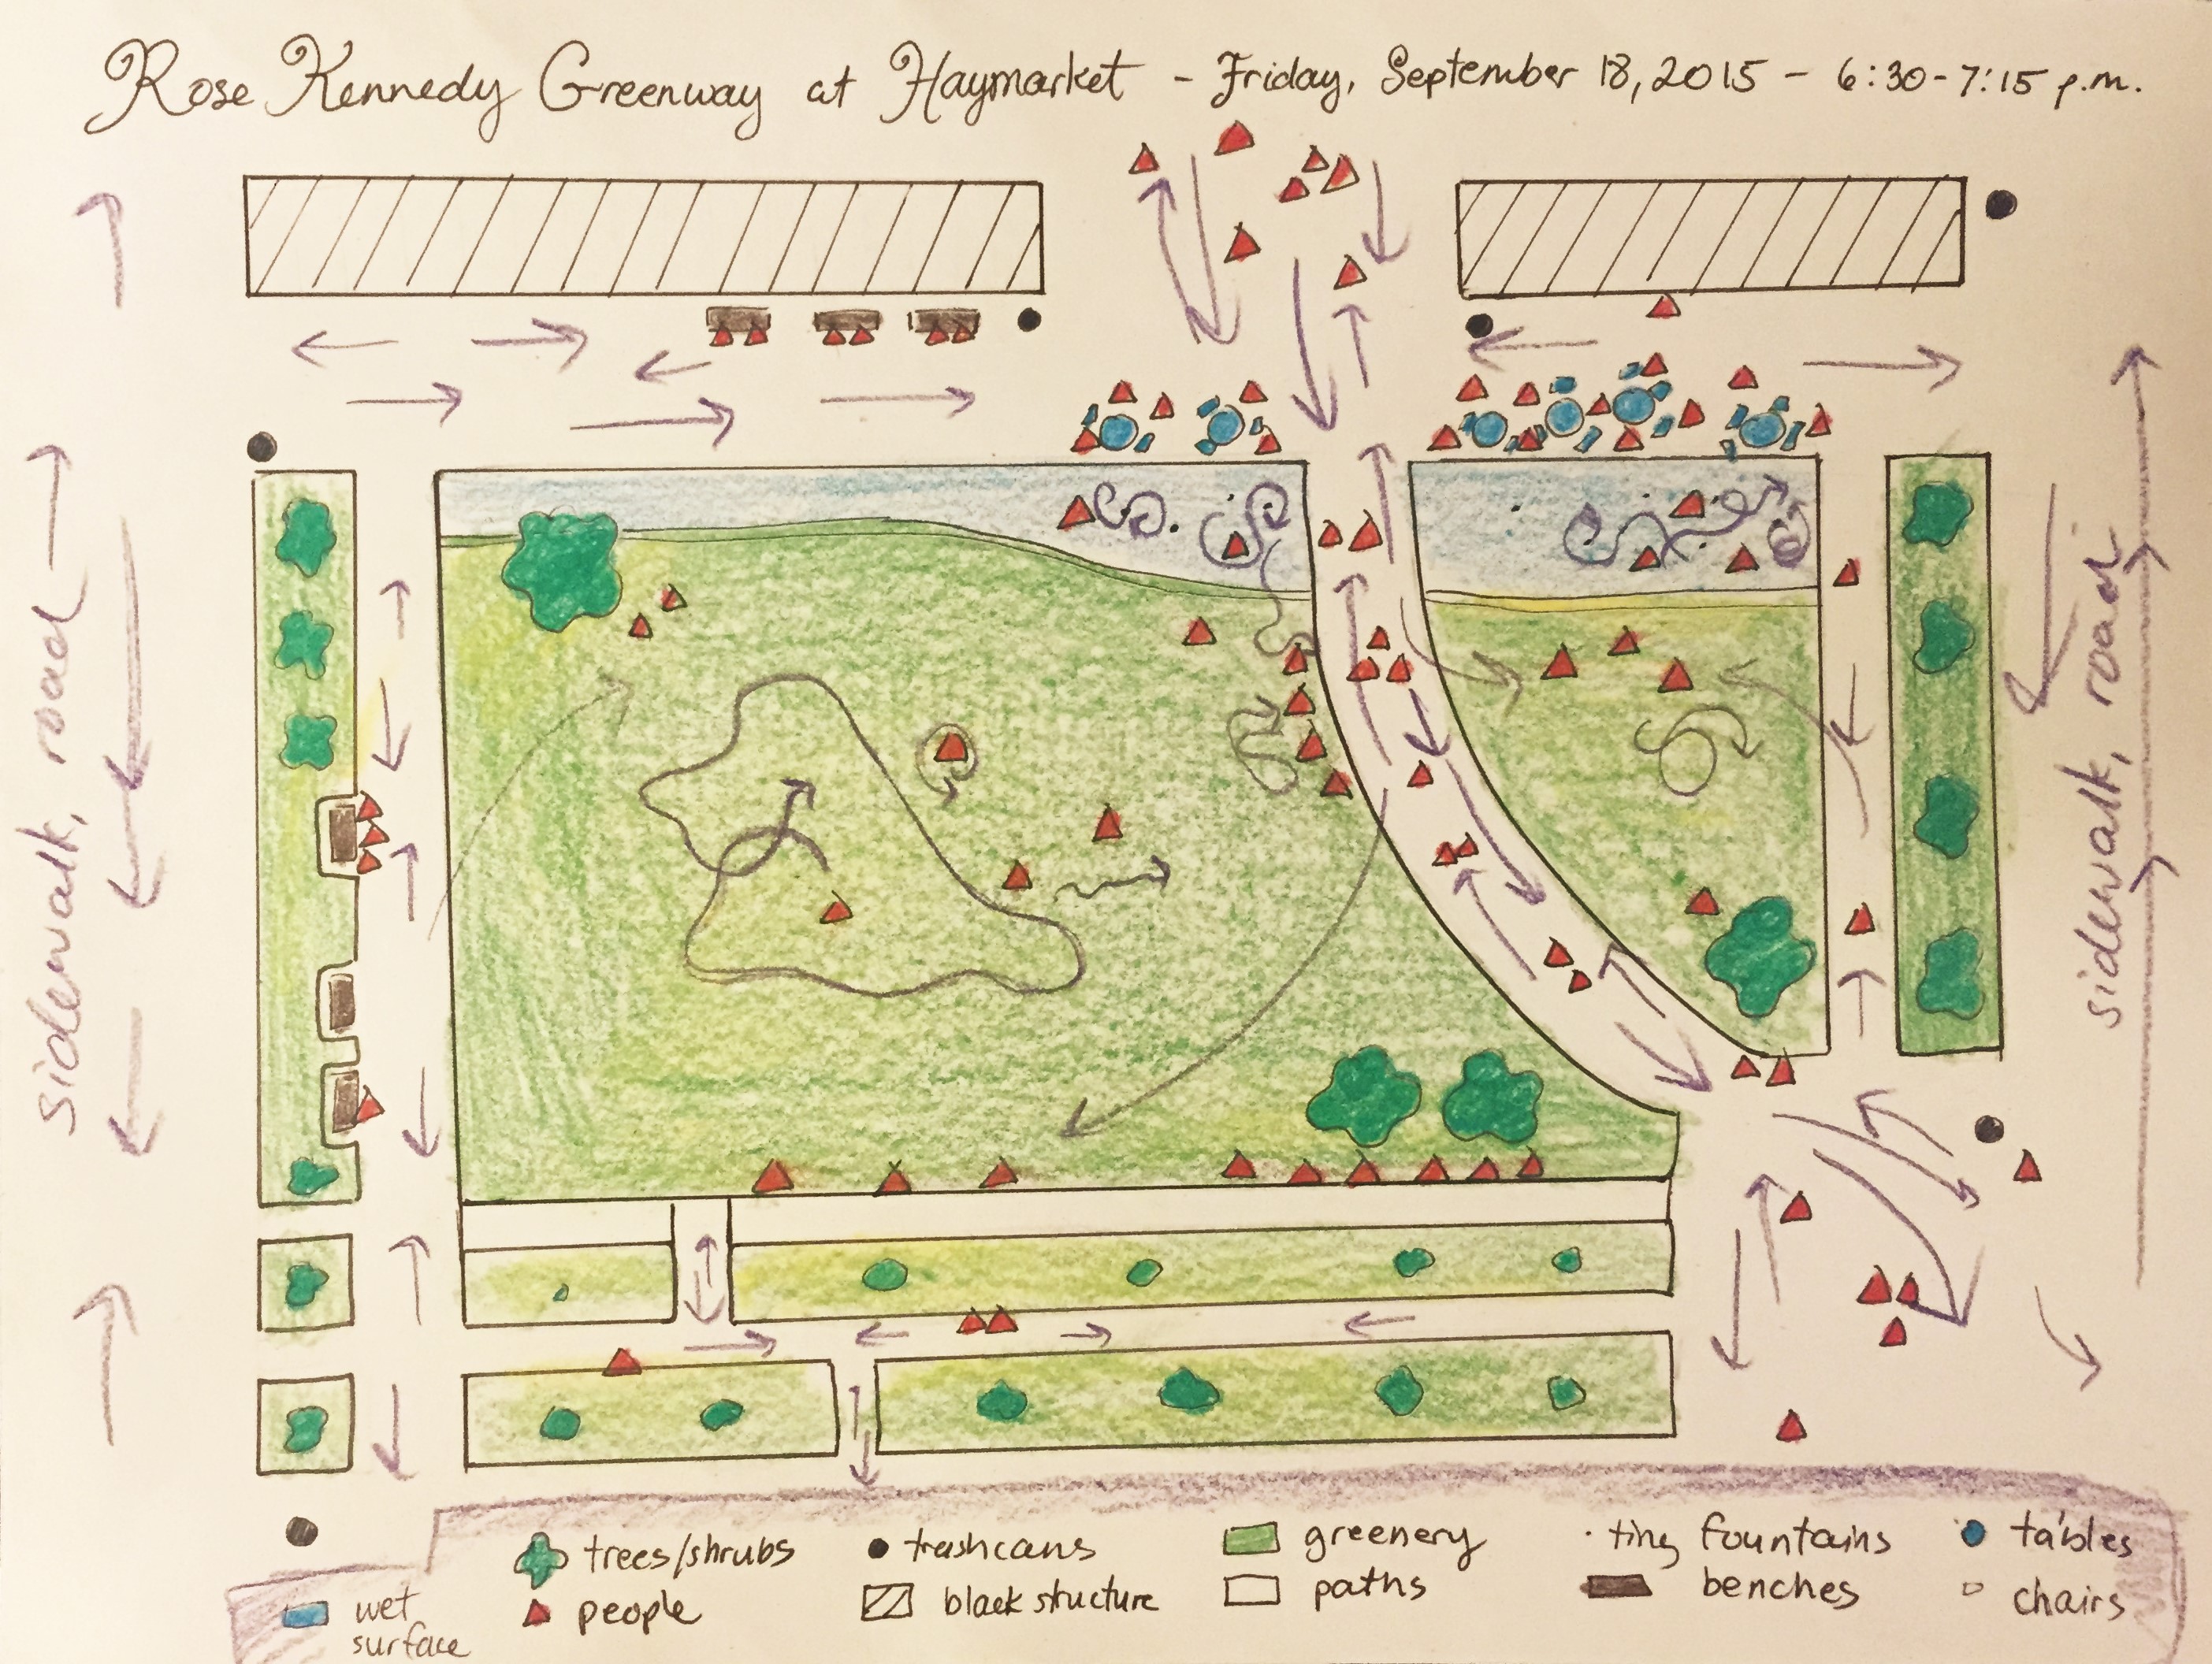 Rose Kennedy Greenway at Haymarket - Friday, September 18, 2015 - 6:30-7:15 p.m.
sidewalk, road
sidewalk, road
trees/shrubs
trashcans
greenery
tiny fountains
tables
wet surface
people
black structure
paths
benches
chairs